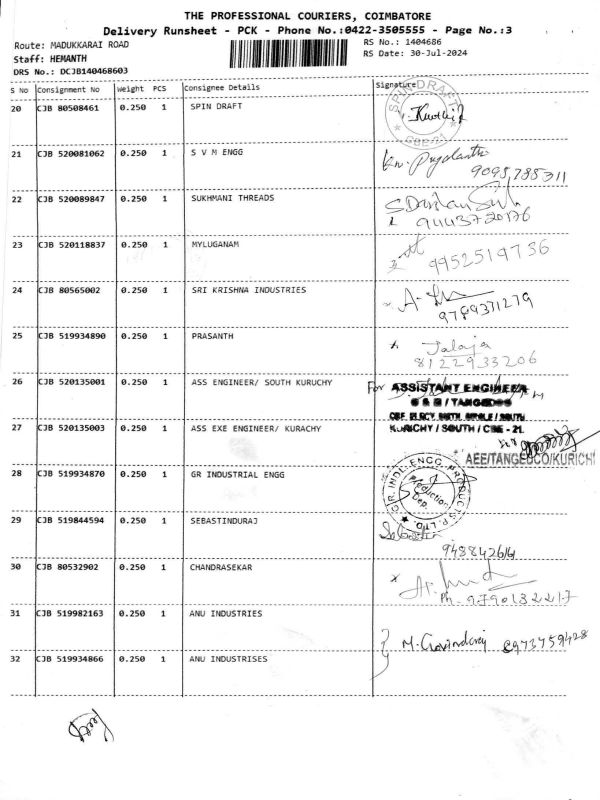 THE PROFESSIONAL COURIERS, COIMBATORE
Delivery Runsheet - PCK - Phone No.:0422-3505555 - Page No.:3
Route: MADUKKARAI ROAD
RS No.: 1404686
Staff: HEMANTH
RS Date: 30-Jul-2024
DRS No.: DCJB140468603
S No Consignment No Weight PCS Consignee Details Signature
20 CJB 80508461 0.250 1 SPIN DRAFT
SPIN DRAFT
CBE-21
21 CJB 520081062 0.250 1 S V M ENGG
9095788311
22 CJB 520089847 0.250 1 SUKHMANI THREADS
9443720176
23 CJB 520118837 0.250 1 MYLUGANAM
9952519736
24 CJB 80565002 0.250 1 SRI KRISHNA INDUSTRIES
9789371279
25 CJB 519934890 0.250 1 PRASANTH
Jalaja
8122933206
26 CJB 520135001 0.250 1 ASS ENGINEER/ SOUTH KURUCHY
For ASSISTANT ENGINEER
O & M / TANGEDCO
KURICHY / SOUTH / CBE - 21.
27 CJB 520135003 0.250 1 ASS EXE ENGINEER/ KURACHY
AEE/TANGEDCO/KURICHI
28 CJB 519934870 0.250 1 GR INDUSTRIAL ENGG
G.R. INDL. ENGG. PRODUCTS P. LTD.
Production Dep.
29 CJB 519844594 0.250 1 SEBASTINDURAJ
948842614
30 CJB 80532902 0.250 1 CHANDRASEKAR
Ph. 9790132217
31 CJB 519982163 0.250 1 ANU INDUSTRIES
M. Govindaraj 8973759428
32 CJB 519934866 0.250 1 ANU INDUSTRISES